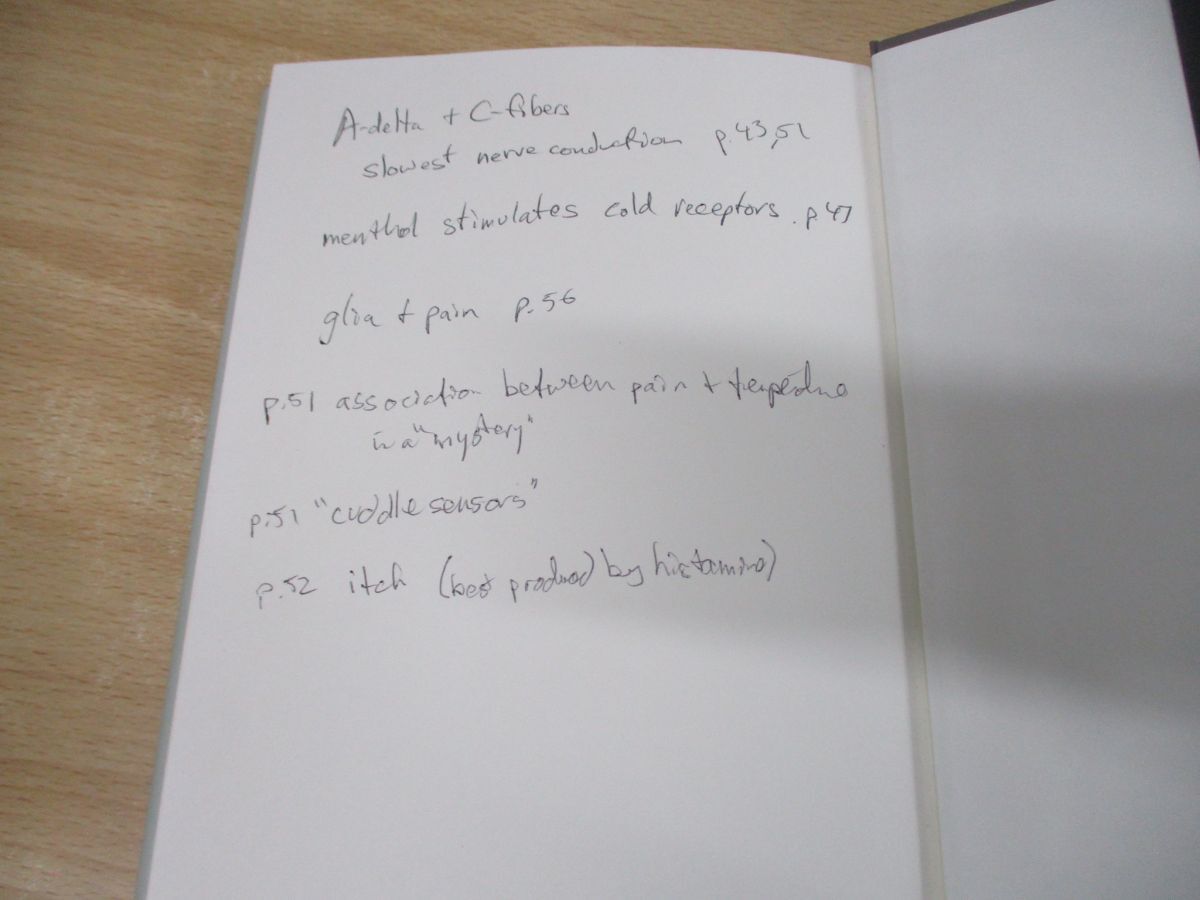 A-delta + C-fibers
slowest nerve conduction p.43,51
menthol stimulates cold receptors. p.47
glia + pain p.56
p.51 association between pain + temperature
is a "mystery"
p.51 "cuddle sensors"
p.52 itch (best produced by histamine)